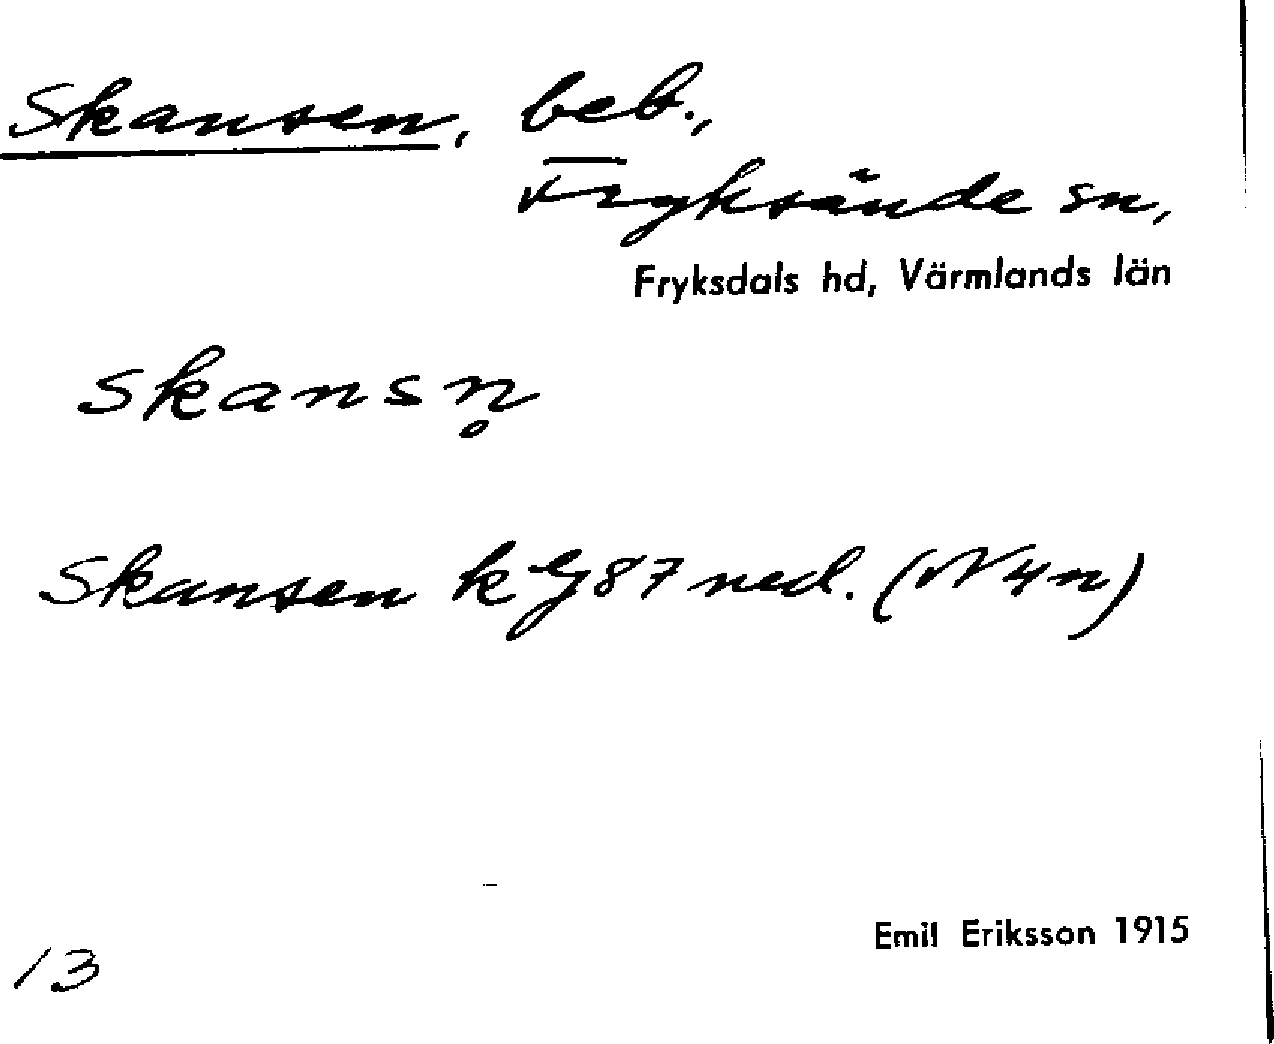 Skansen, beb.,
Fryksände sn,
Fryksdals hd, Värmlands län
skansn̥
Skansen k G 87 ned. (N4n)
Emil Eriksson 1915
13